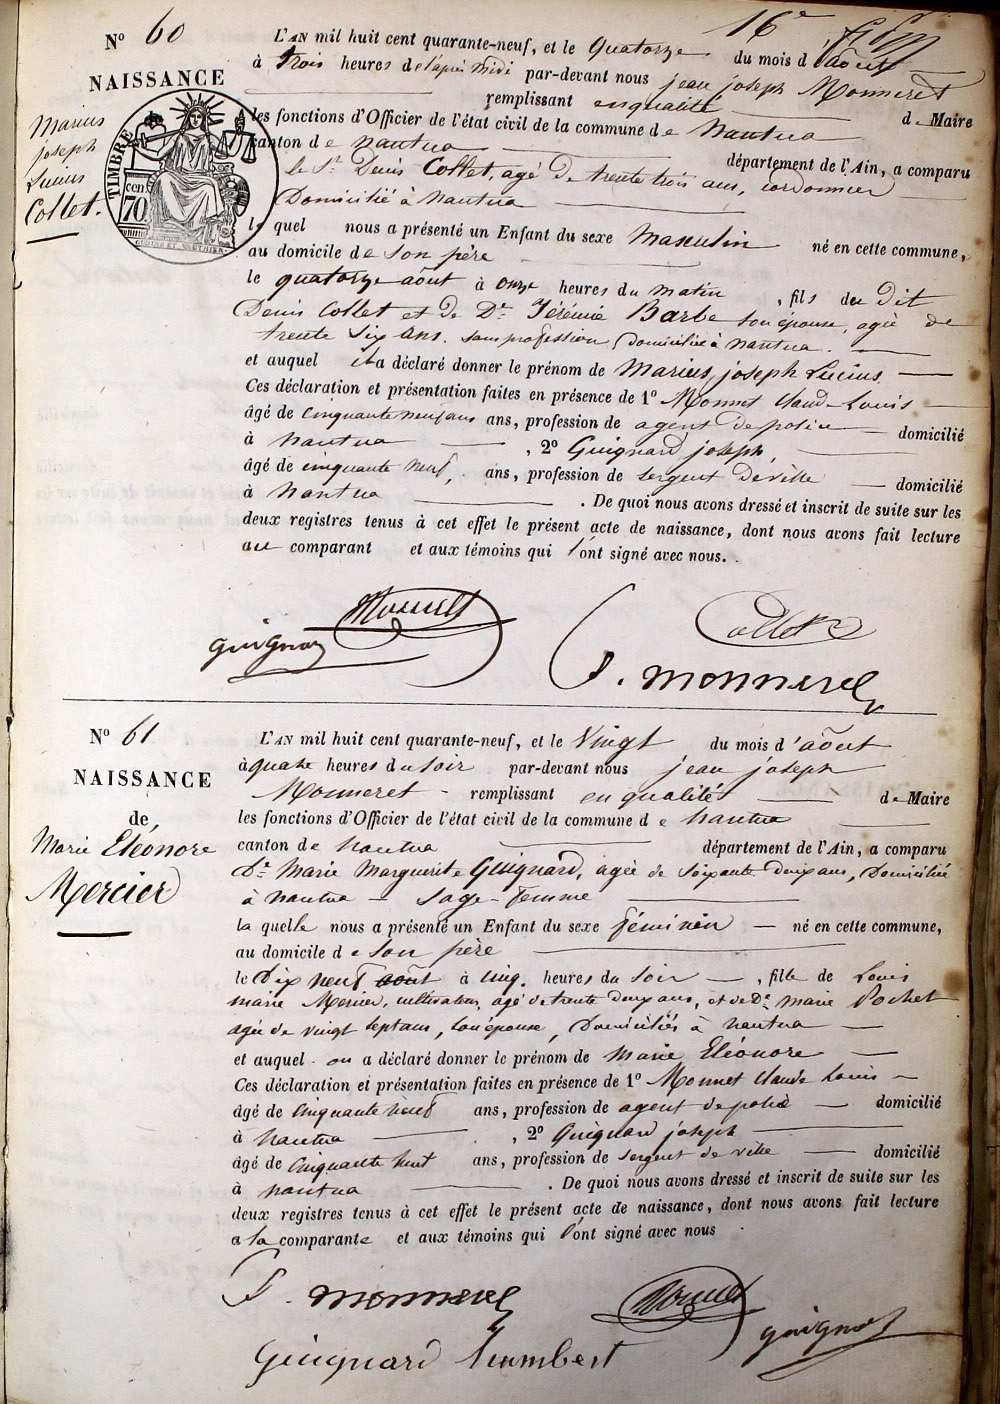 16e
N° 60
NAISSANCE
Marius
joseph
Lucius
Collet.
TIMBRE
70 cen
L'AN mil huit cent quarante-neuf, et le quatorze du mois d'août
à trois heures de l'après midi par-devant nous jean joseph Monneret
remplissant en qualité de Maire
les fonctions d'Officier de l'état civil de la commune de nantua
canton de nantua département de l'Ain, a comparu
le Sr. Denis Collet, agé de trente trois ans, cordonnier
Domicilié à nantua
le quel nous a présenté un Enfant du sexe Masculin né en cette commune,
au domicile de son père
le quatorze août à onze heures du matin, fils du dit
Denis Collet et de De. Jérémie Barbe son épouse, agée de
trente six ans, sans profession, domiciliée à nantua.
et auquel il a déclaré donner le prénom de Marius, joseph Lucius,
Ces déclaration et présentation faites en présence de 1° Monnet Claude Louis
âgé de cinquante neuf ans ans, profession de agent de police domicilié
à nantua, 2° Guignard joseph,
âgé de cinquante neuf, ans, profession de sergent de ville domicilié
à nantua. De quoi nous avons dressé et inscrit de suite sur les
deux registres tenus à cet effet le présent acte de naissance, dont nous avons fait lecture
au comparant et aux témoins qui l'ont signé avec nous.
Monnet Collet
guignard J. monneret
N° 61
NAISSANCE
de
Marie Eléonore
Mercier
L'AN mil huit cent quarante-neuf, et le vingt du mois d'août
à quatre heures du soir par-devant nous jean joseph
Monneret remplissant en qualité de Maire
les fonctions d'Officier de l'état civil de la commune de nantua
canton de nantua département de l'Ain, a comparu
De. Marie Marguerite Guignard, agée de soixante deux ans, Domiciliée
à nantua - sage-femme
la quelle nous a présenté un Enfant du sexe féminin né en cette commune,
au domicile de son père
le dix neuf août à cinq heures du soir, fille de Louis
marie Mercier, cultivateur, agé de trente deux ans, et de De. marie Pochet
agée de vingt sept ans, son épouse, Domiciliés à nantua
et auquel on a déclaré donner le prénom de Marie Eléonore
Ces déclaration et présentation faites en présence de 1° Monnet Claude Louis
âgé de cinquante neuf ans, profession de agent de police domicilié
à nantua, 2° Guignard joseph
âgé de cinquante neuf ans, profession de sergent de ville domicilié
à nantua. De quoi nous avons dressé et inscrit de suite sur les
deux registres tenus à cet effet le présent acte de naissance, dont nous avons fait lecture
a la comparante et aux témoins qui l'ont signé avec nous
J. monneret Monnet guignard
Guignard humbert